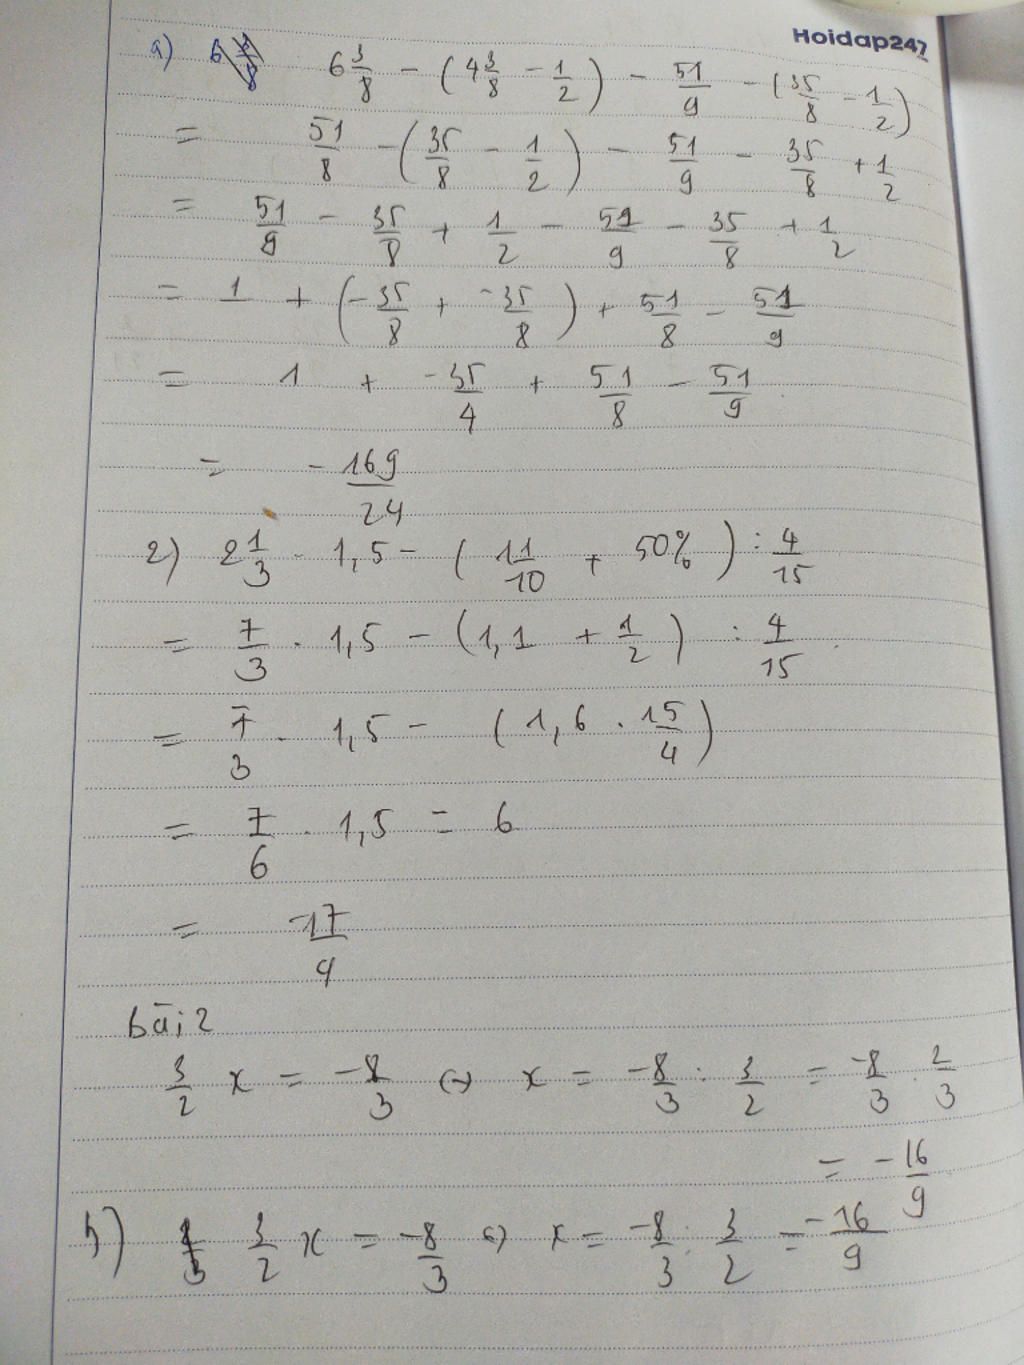 Hoidap247
a) 6 6 3/8 - (4 3/8 - 1/2) - 51/9 - (35/8 - 1/2)
= 51/8 - (35/8 - 1/2) - 51/9 - 35/8 + 1/2
= 51/9 - 35/8 + 1/2 - 51/9 - 35/8 + 1/2
= 1 + (-35/8 + -35/8) + 51/8 - 51/9
= 1 + -35/4 + 51/8 - 51/9
= -169/24
2) 2 1/3 . 1,5 - (11/10 + 50%) : 4/15
= 7/3 . 1,5 - (1,1 + 1/2) : 4/15
= 7/3 . 1,5 - (1,6 . 15/4)
= 7/6 . 1,5 = 6
= -17/4
bài 2
3/2 x = -8/3 (=) x = -8/3 : 3/2 = -8/3 . 2/3
= -16/9
b) 3/2 x = -8/3 (=) x = -8/3 : 3/2 = -16/9